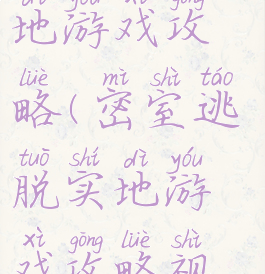 dì yóu xì gōng
地游戏攻
lüè mì shì táo
略(密室逃
tuō shí dì yóu
脱实地游
xì gōng lüè shì
戏攻略视